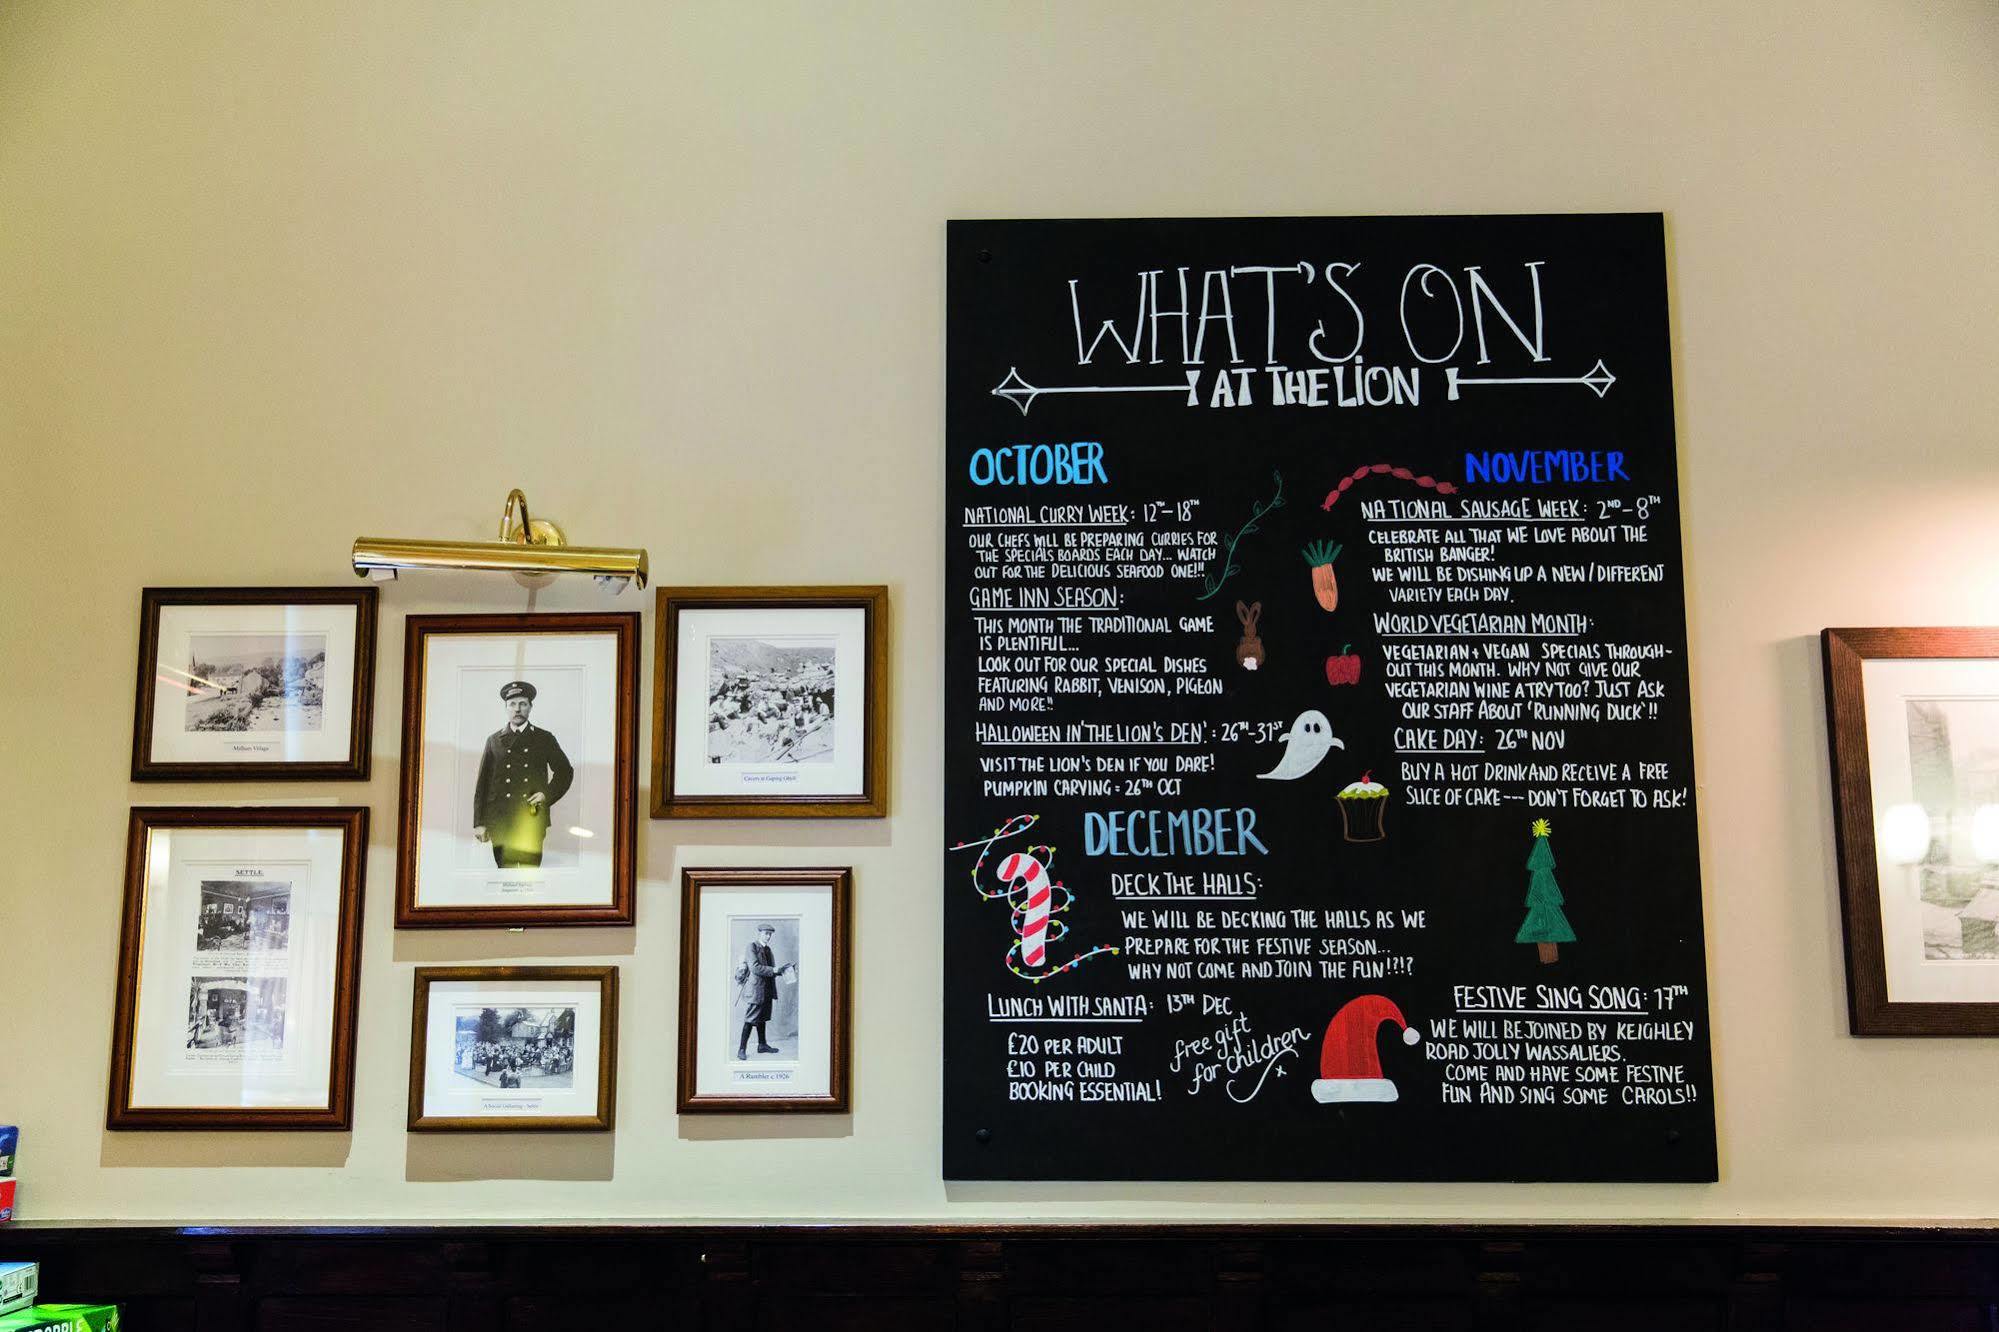 WHAT'S ON
AT THE LION
OCTOBER
NATIONAL CURRY WEEK: 12TH-18TH
OUR CHEFS WILL BE PREPARING CURRIES FOR
THE SPECIALS BOARDS EACH DAY... WATCH
OUT FOR THE DELICIOUS SEAFOOD ONE!!!
GAME INN SEASON:
THIS MONTH THE TRADITIONAL GAME
IS PLENTIFUL...
LOOK OUT FOR OUR SPECIAL DISHES
FEATURING RABBIT, VENISON, PIGEON
AND MORE!!
HALLOWEEN IN 'THE LION'S DEN'.: 26TH-31ST
VISIT THE LION'S DEN IF YOU DARE!
PUMPKIN CARVING = 26TH OCT
NOVEMBER
NATIONAL SAUSAGE WEEK: 2ND-8TH
CELEBRATE ALL THAT WE LOVE ABOUT THE
BRITISH BANGER!
WE WILL BE DISHING UP A NEW/DIFFERENT
VARIETY EACH DAY.
WORLD VEGETARIAN MONTH:
VEGETARIAN + VEGAN SPECIALS THROUGH-
OUT THIS MONTH. WHY NOT GIVE OUR
VEGETARIAN WINE A TRY TOO? JUST ASK
OUR STAFF ABOUT 'RUNNING DUCK'!!
CAKE DAY: 26TH NOV
BUY A HOT DRINK AND RECEIVE A FREE
SLICE OF CAKE --- DON'T FORGET TO ASK!
DECEMBER
DECK THE HALLS:
WE WILL BE DECKING THE HALLS AS WE
PREPARE FOR THE FESTIVE SEASON...
WHY NOT COME AND JOIN THE FUN!?!?
LUNCH WITH SANTA: 13TH DEC
£20 PER ADULT
£10 PER CHILD
BOOKING ESSENTIAL!
free gift
for children
x
FESTIVE SING SONG: 17TH
WE WILL BE JOINED BY KEIGHLEY
ROAD JOLLY WASSALIERS.
COME AND HAVE SOME FESTIVE
FUN AND SING SOME CAROLS!!
Malham Village
Cavers at Gaping Ghyll
SETTLE.
A Social Gathering - Settle
A Rambler c 1926